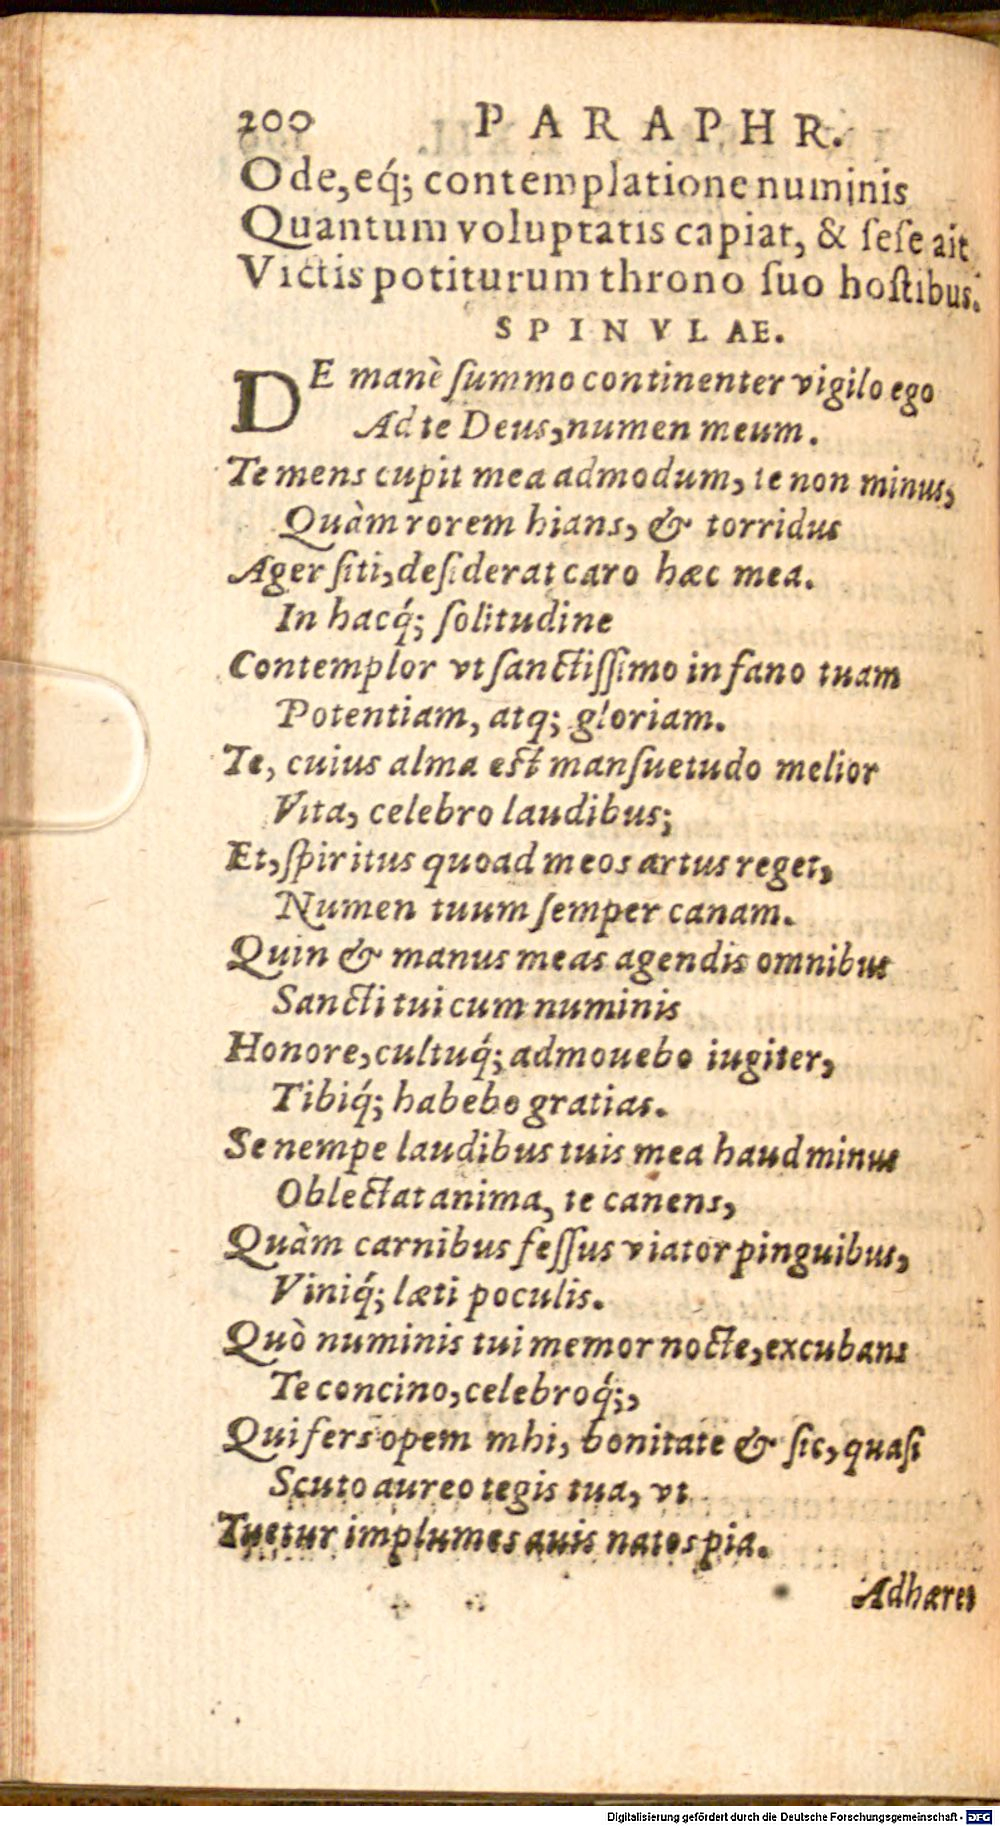 200 PARAPHR.
Ode, eq́; contemplatione numinis
Quantum voluptatis capiat, & ſeſe ait
Victis potiturum throno ſuo hoſtibus.
SPINVLAE.
DE manè ſummo continenter vigilo ego
Ad te Deus, numen meum.
Te mens cupit mea admodum, te non minus,
Quàm rorem hians, & torridus
Ager ſiti, deſiderat caro hæc mea.
In hacq́; ſolitudine
Contemplor vt ſanctiſſimo in fano tuam
Potentiam, atq; gloriam.
Te, cuius alma eſt manſuetudo melior
Vita, celebro laudibus;
Et, ſpiritus quoad meos artus reget,
Numen tuum ſemper canam.
Quin & manus meas agendis omnibus
Sancti tui cum numinis
Honore, cultuq́; admouebo iugiter,
Tibiq́; habebo gratias.
Se nempe laudibus tuis mea haud minus
Oblectat anima, te canens,
Quàm carnibus feſſus viator pinguibus,
Viniq́; læti poculis.
Quò numinis tui memor nocte, excubans
Te concino, celebroq́;,
Qui fers opem mhi, bonitate & ſic, quaſi
Scuto aureo tegis tua, vt
Tuetur implumes auis natos pia.
Adhæret
Digitalisierung gefördert durch die Deutsche Forschungsgemeinschaft - DFG